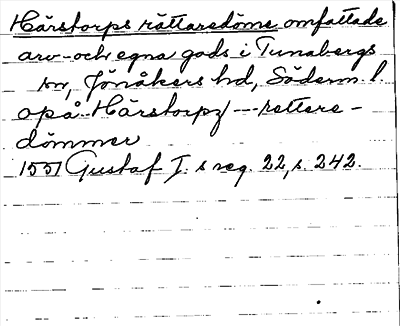 Hårstorps rättaredöme omfattade
arv- och egna gods i Tunabergs
sn, Jönåkers hd, Söderm. l.
opå Hårstorpz --- rettere-
dömmer
1551 Gustaf I. s reg. 22, s. 242.